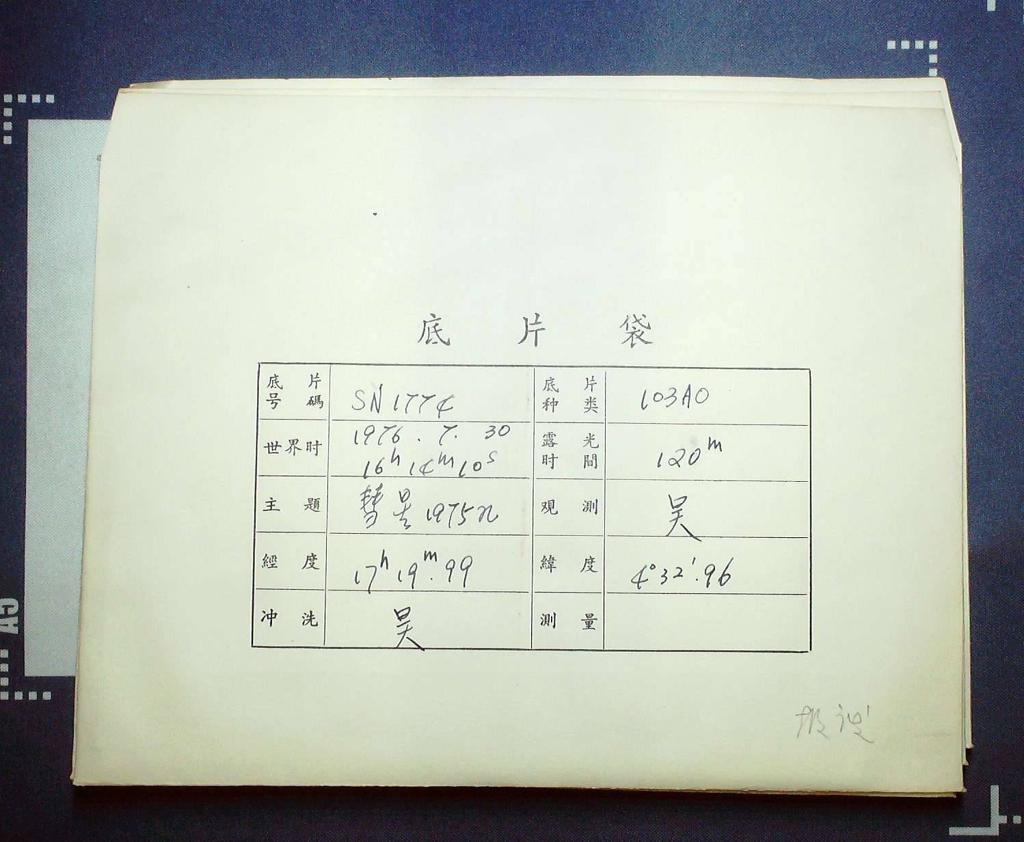 底片袋
底片号碼 SN1774 底片种类 103A0
世界时 1976.7.30 16ʰ14ᵐ10ˢ 露光时間 120ᵐ
主題 彗星1975n 观測 吴
經度 17ʰ19ᵐ.99 緯度 4°32′.96
冲洗 吴 測量